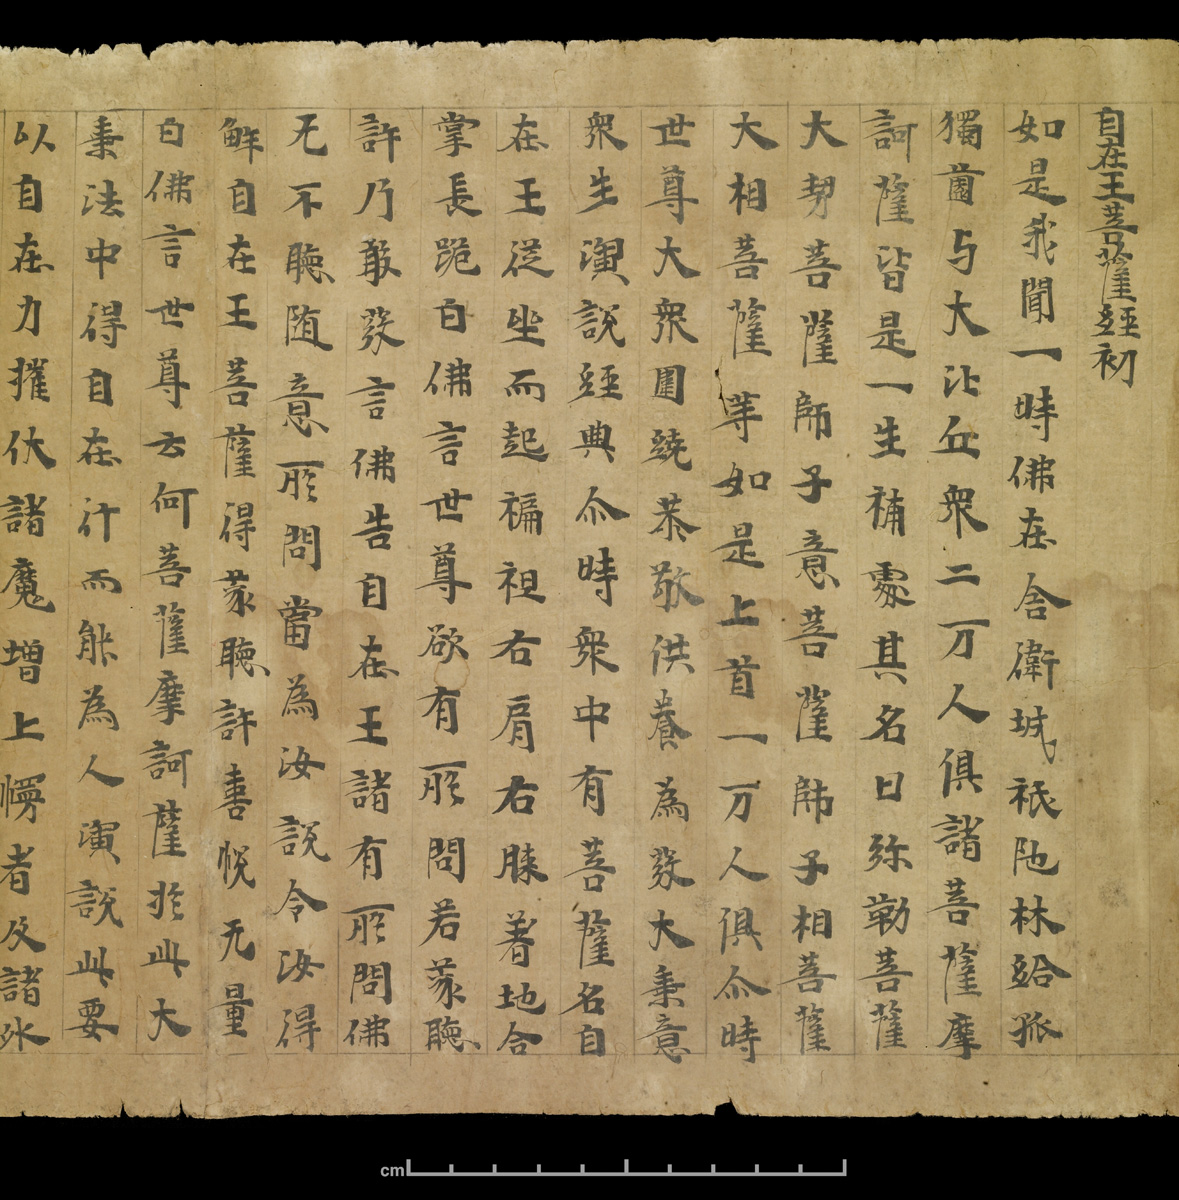 自在王菩薩經初
如是我聞一時佛在舍衛城祇陁林給孤
獨薗与大比丘衆二万人俱諸菩薩摩
訶薩皆是一生補處其名曰弥勒菩薩
大勢菩薩師子意菩薩師子相菩薩
大相菩薩等如是上首一万人俱尒時
世尊大衆圍繞恭敬供養為發大乗意
衆生演說經典尒時衆中有菩薩名自
在王從坐而起褊袒右肩右膝著地合
掌長跪白佛言世尊欲有所問若蒙聴
許乃敢發言佛告自在王諸有所問佛
无不聴随意所問當為汝說令汝得
解自在王菩薩得蒙聴許喜恱无量
白佛言世尊云何菩薩摩訶薩於此大
乗法中得自在行而能為人演說此要
以自在力摧伏諸魔增上憜者及諸外